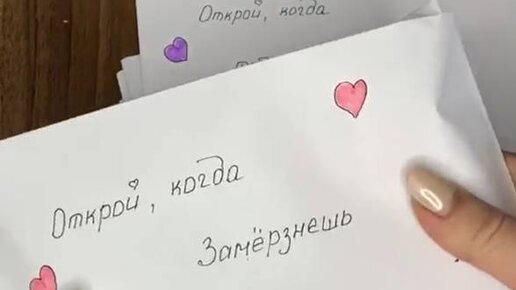 Открой, когда
Открой, когда
Замёрзнешь